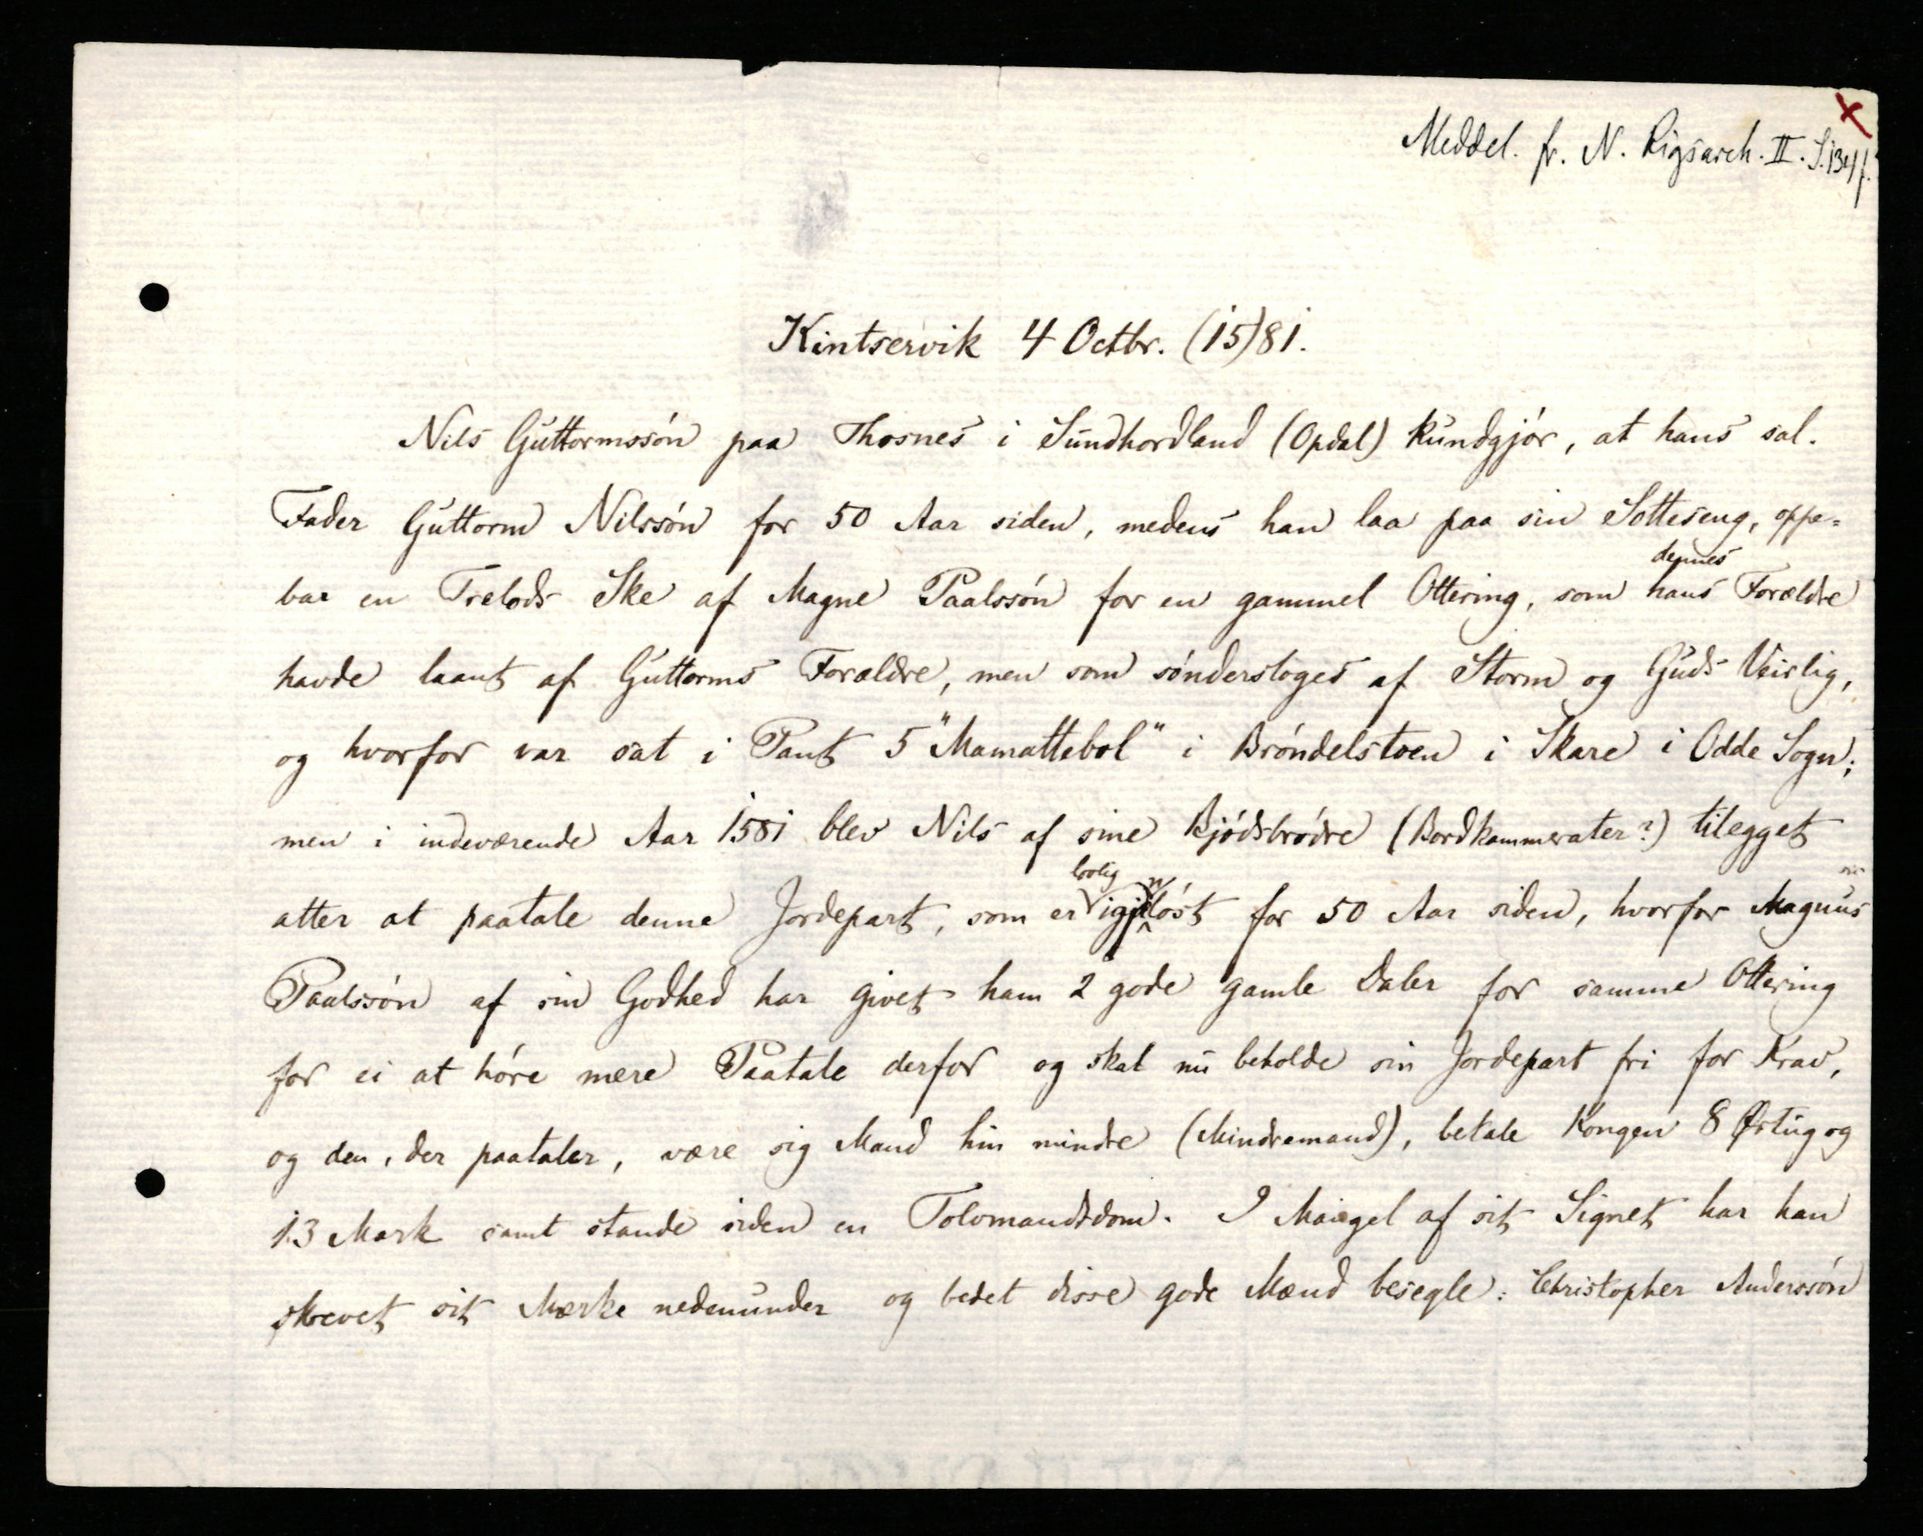 Meddel. fr. N. Rigsarch. II. S.
Kintservik 4 Octbr. (15)81.
Nils Guttormssón paa Thosnes i Sundhordland (Opdal) kundgjór, at hans sal.
Fader Guttorm Nilssón for 50 Aar siden, medens han laa paa sin Sotteseng, oppe-
bar en Trelods Ske af Magne Paalssón for en gammel Ottering, som hans dennes Forældre
havde laant af Guttorms Forældre, men som sónderstoges af Storm og Guds Veirlig,
og hvorfor var sat i Pant 5 "Mamattebol" i Bróndelstoen i Skare i Odde Sogn;
men i indeværende Aar 1581 blev Nils af sine Bjódsbródre (Bordkammerater?) tilegget
atter at paatale denne Jordepart, som er lovlig igjenlóst for 50 Aar siden, hvorfor Magnus
Paalssón af sin Godhed har givet ham 2 gode gamle Daler for samme Ottering
for ei at hóre mere Paatale derfor og skal nu beholde sin Jordepart fri for Krav,
og den, der paataler, være sig Mand hin mindre (Mindremand), betale Kongen 8 Ørtug og
13 Mark samt stande siden en Tolvmandsdom. I Mangel af sit Signet har han
skrevet sit Mærke nedenunder og bedet disse gode Mænd besegle: Christopher Anderssón